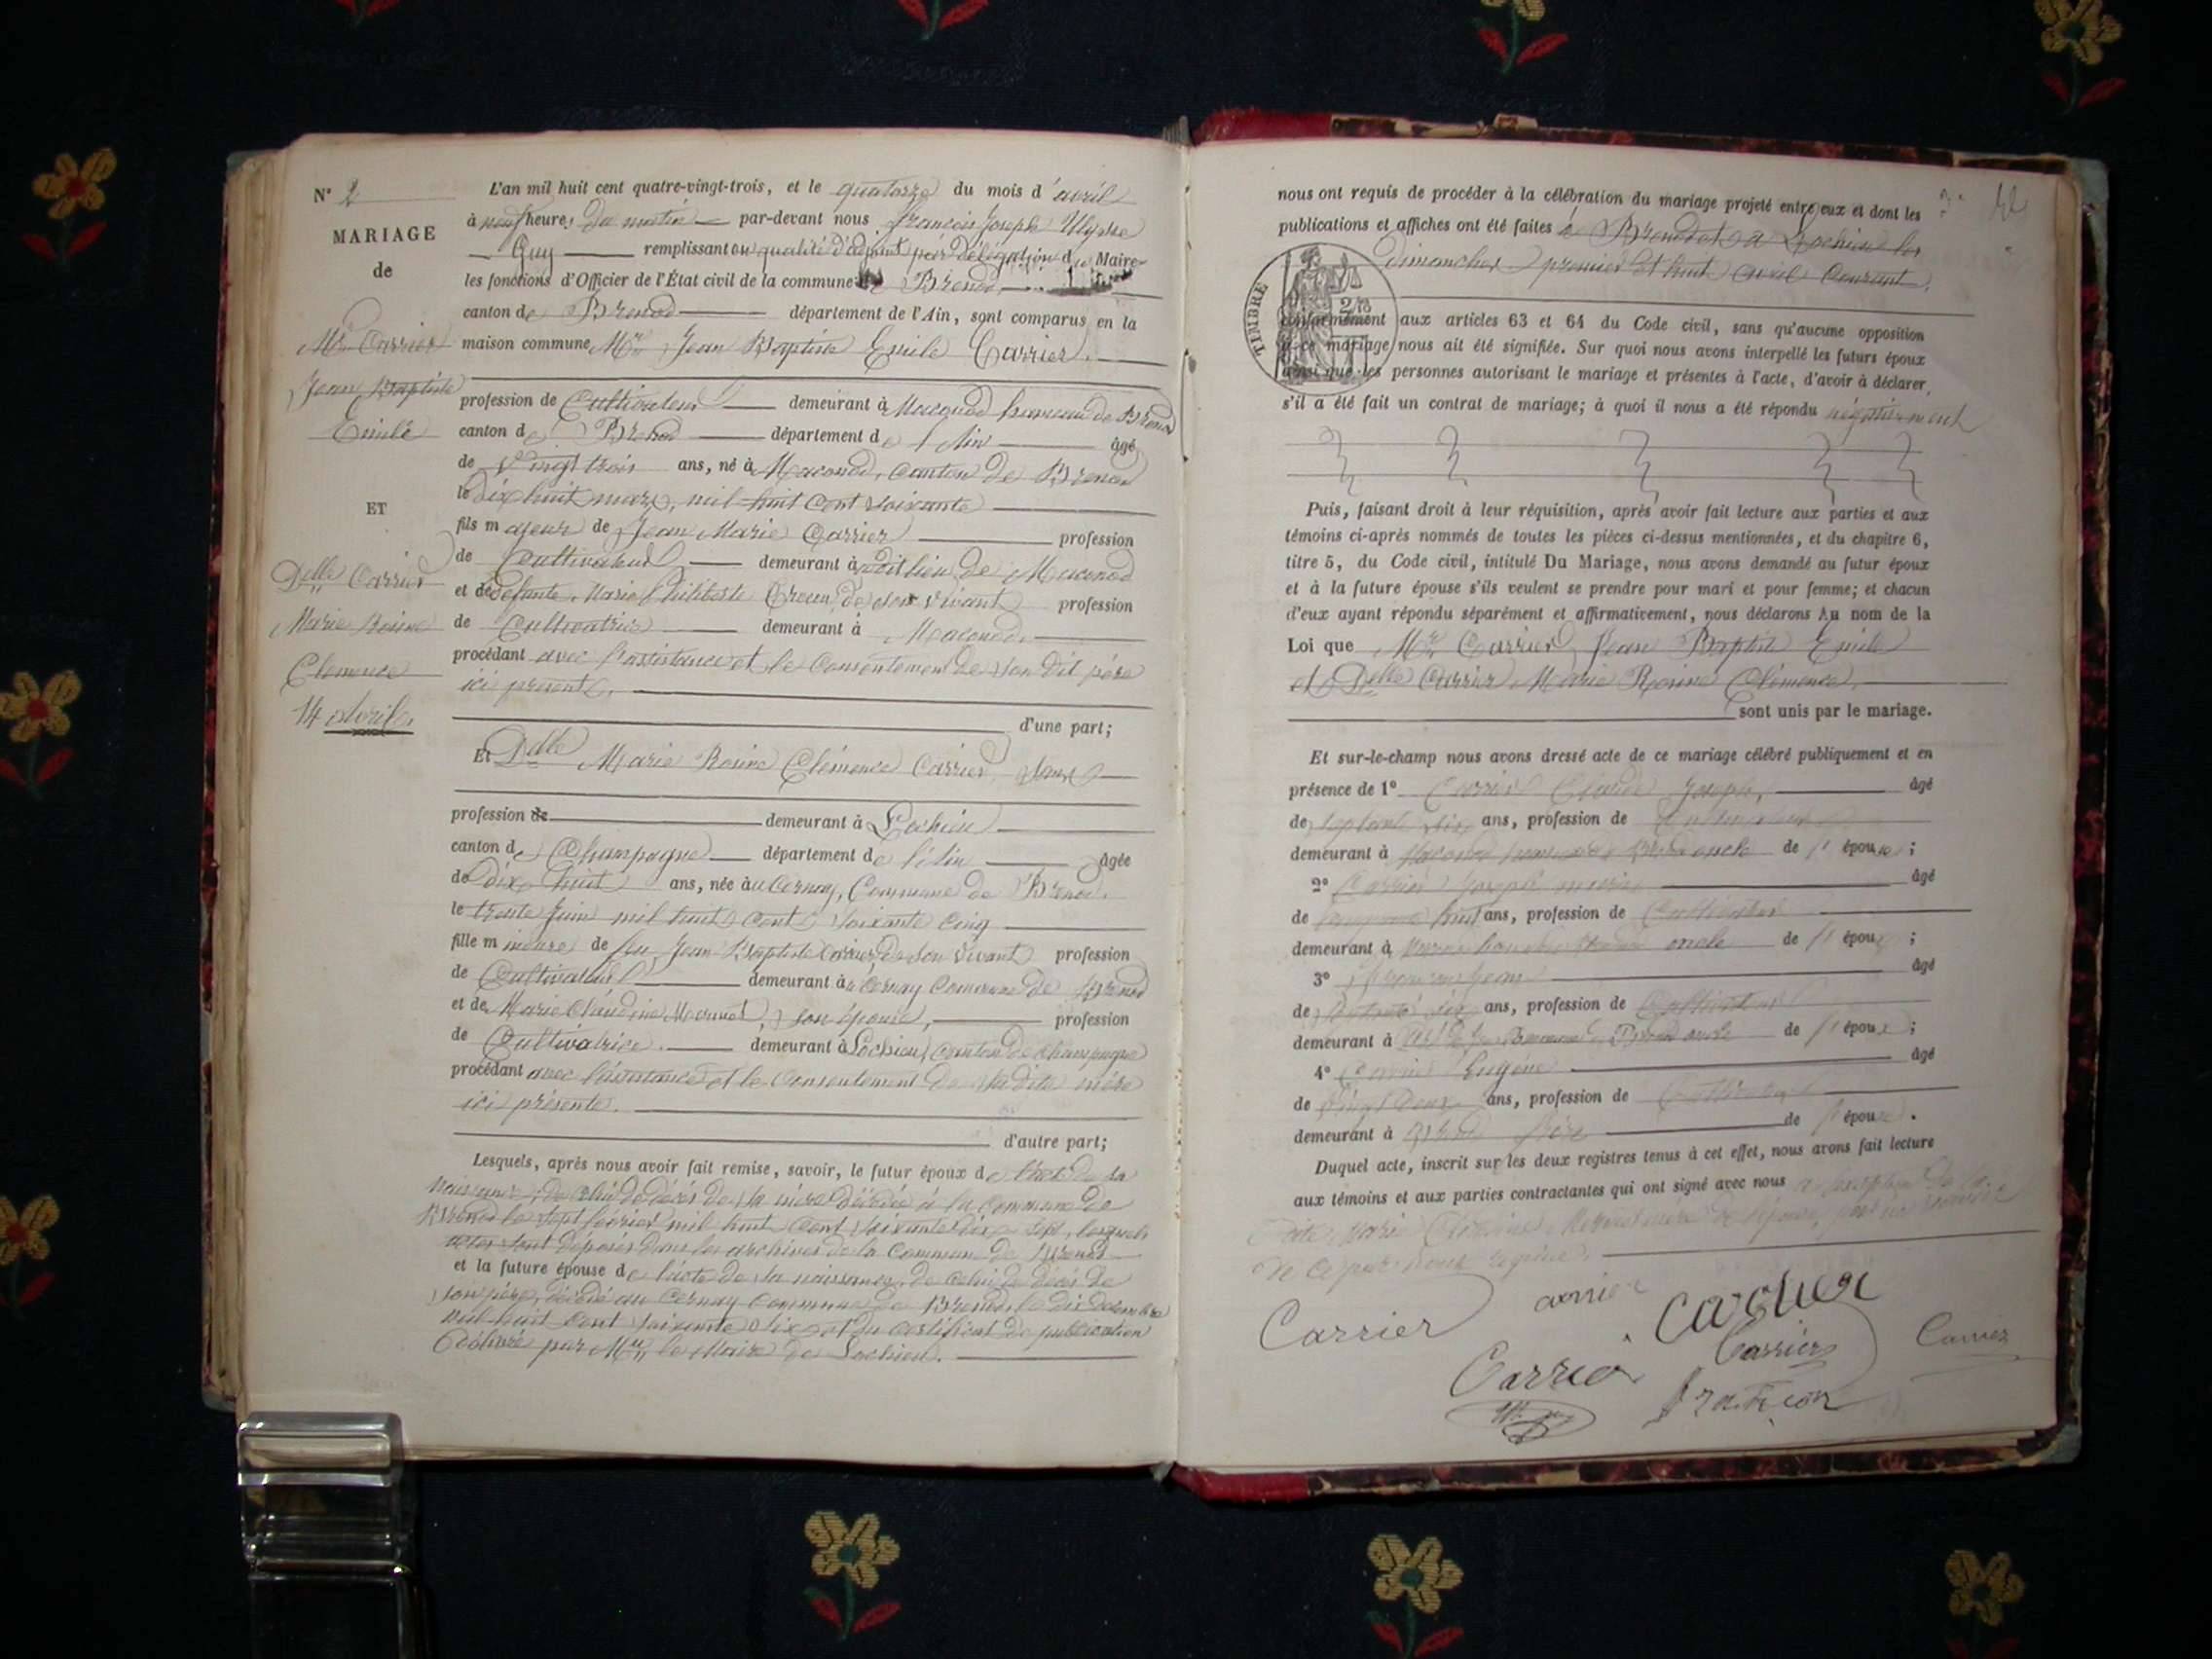 N° 2
MARIAGE
de
Mr Carrier
Jean Baptiste
Emile
ET
Delle Carrier
Marie Rosine
Clemence
14 Avril.
L'an mil huit cent quatre-vingt-trois, et le quatorze du mois d'avril
à neuf heures du matin par-devant nous François Joseph Ulysse
Guy remplissant en qualité d'adjoint par délégation du Maire
les fonctions d'Officier de l'État civil de la commune de Brenod
canton de Brenod département de l'Ain, sont comparus en la
maison commune Mr Jean Baptiste Emile Carrier.
profession de Cultivateur demeurant à Maconod hameau de Brenod
canton de Brenod département de l'Ain âgé
de vingt trois ans, né à Maconod, canton de Brenod
le dix huit mars, mil huit cent soixante
fils majeur de Jean Marie Carrier profession
de Cultivateur demeurant à dit lieu de Maconod
et de défunte Marie Philiberte de son vivant profession
de Cultivatrice demeurant à Maconod.
procédant avec l'assistance et le consentement de son dit père
ici présent.
d'une part;
Et Delle Marie Rosine Clémence Carrier, sans
profession de demeurant à Lochieu
canton de Champagne département de l'Ain âgée
de dix huit ans, née au Cernay, Commune de Brenod.
le trente Juin mil huit cent soixante cinq
fille mineure de feu Jean Baptiste Carrier, de son vivant profession
de Cultivateur demeurant à Cernay Commune de Brenod
et de Marie Claudine son épouse, profession
de Cultivatrice. demeurant à Lochieu, canton de Champagne
procédant avec l'assistance et le consentement de sa dite mère
ici présente.
d'autre part;
Lesquels, après nous avoir fait remise, savoir, le futur époux de l'acte de sa
naissance, de celui de décès de sa mère décédée à la commune de
Brenod le sept février mil huit cent soixante dix sept, lesquels
actes sont déposés dans les archives de la commune de Brenod
et la future épouse de l'acte de sa naissance, de celui de décès de
son père, décédé au Cernay commune de Brenod, le dix décembre
mil huit cent soixante dix et du certificat de publication
délivré par Mr le Maire de Lochieu.
nous ont requis de procéder à la célébration du mariage projeté entre eux et dont les
publications et affiches ont été faites à Brenod et à Lochieu les
dimanches premier et huit avril courant.
TIMBRE
conformément aux articles 63 et 64 du Code civil, sans qu'aucune opposition
à ce mariage nous ait été signifiée. Sur quoi nous avons interpellé les futurs époux
ainsi que les personnes autorisant le mariage et présentes à l'acte, d'avoir à déclarer
s'il a été fait un contrat de mariage; à quoi il nous a été répondu négativement
Puis, faisant droit à leur réquisition, après avoir fait lecture aux parties et aux
témoins ci-après nommés de toutes les pièces ci-dessus mentionnées, et du chapitre 6,
titre 5, du Code civil, intitulé Du Mariage, nous avons demandé au futur époux
et à la future épouse s'ils veulent se prendre pour mari et pour femme; et chacun
d'eux ayant répondu séparément et affirmativement, nous déclarons Au nom de la
Loi que Mr Carrier, Jean Baptiste Emile
et Delle Carrier Marie Rosine Clémence
sont unis par le mariage.
Et sur-le-champ nous avons dressé acte de ce mariage célébré publiquement et en
présence de 1° Carrier Joseph, âgé
de ans, profession de Cultivateur
demeurant à oncle de l'époux;
2° Carrier Joseph marie âgé
de huit ans, profession de Cultivateur
demeurant à oncle de l'époux;
3° âgé
de six ans, profession de Cultivateur
demeurant à Brenod oncle de l'épouse;
4° Carrier Eugène âgé
de vingt deux ans, profession de Cultivateur
demeurant à Brenod frère de l'épouse.
Duquel acte, inscrit sur les deux registres tenus à cet effet, nous avons fait lecture
aux témoins et aux parties contractantes qui ont signé avec nous à l'exception de la
mère de l'épouse, pour
ne
Carrier
Carrier
Carrier
Carrier
Carrier